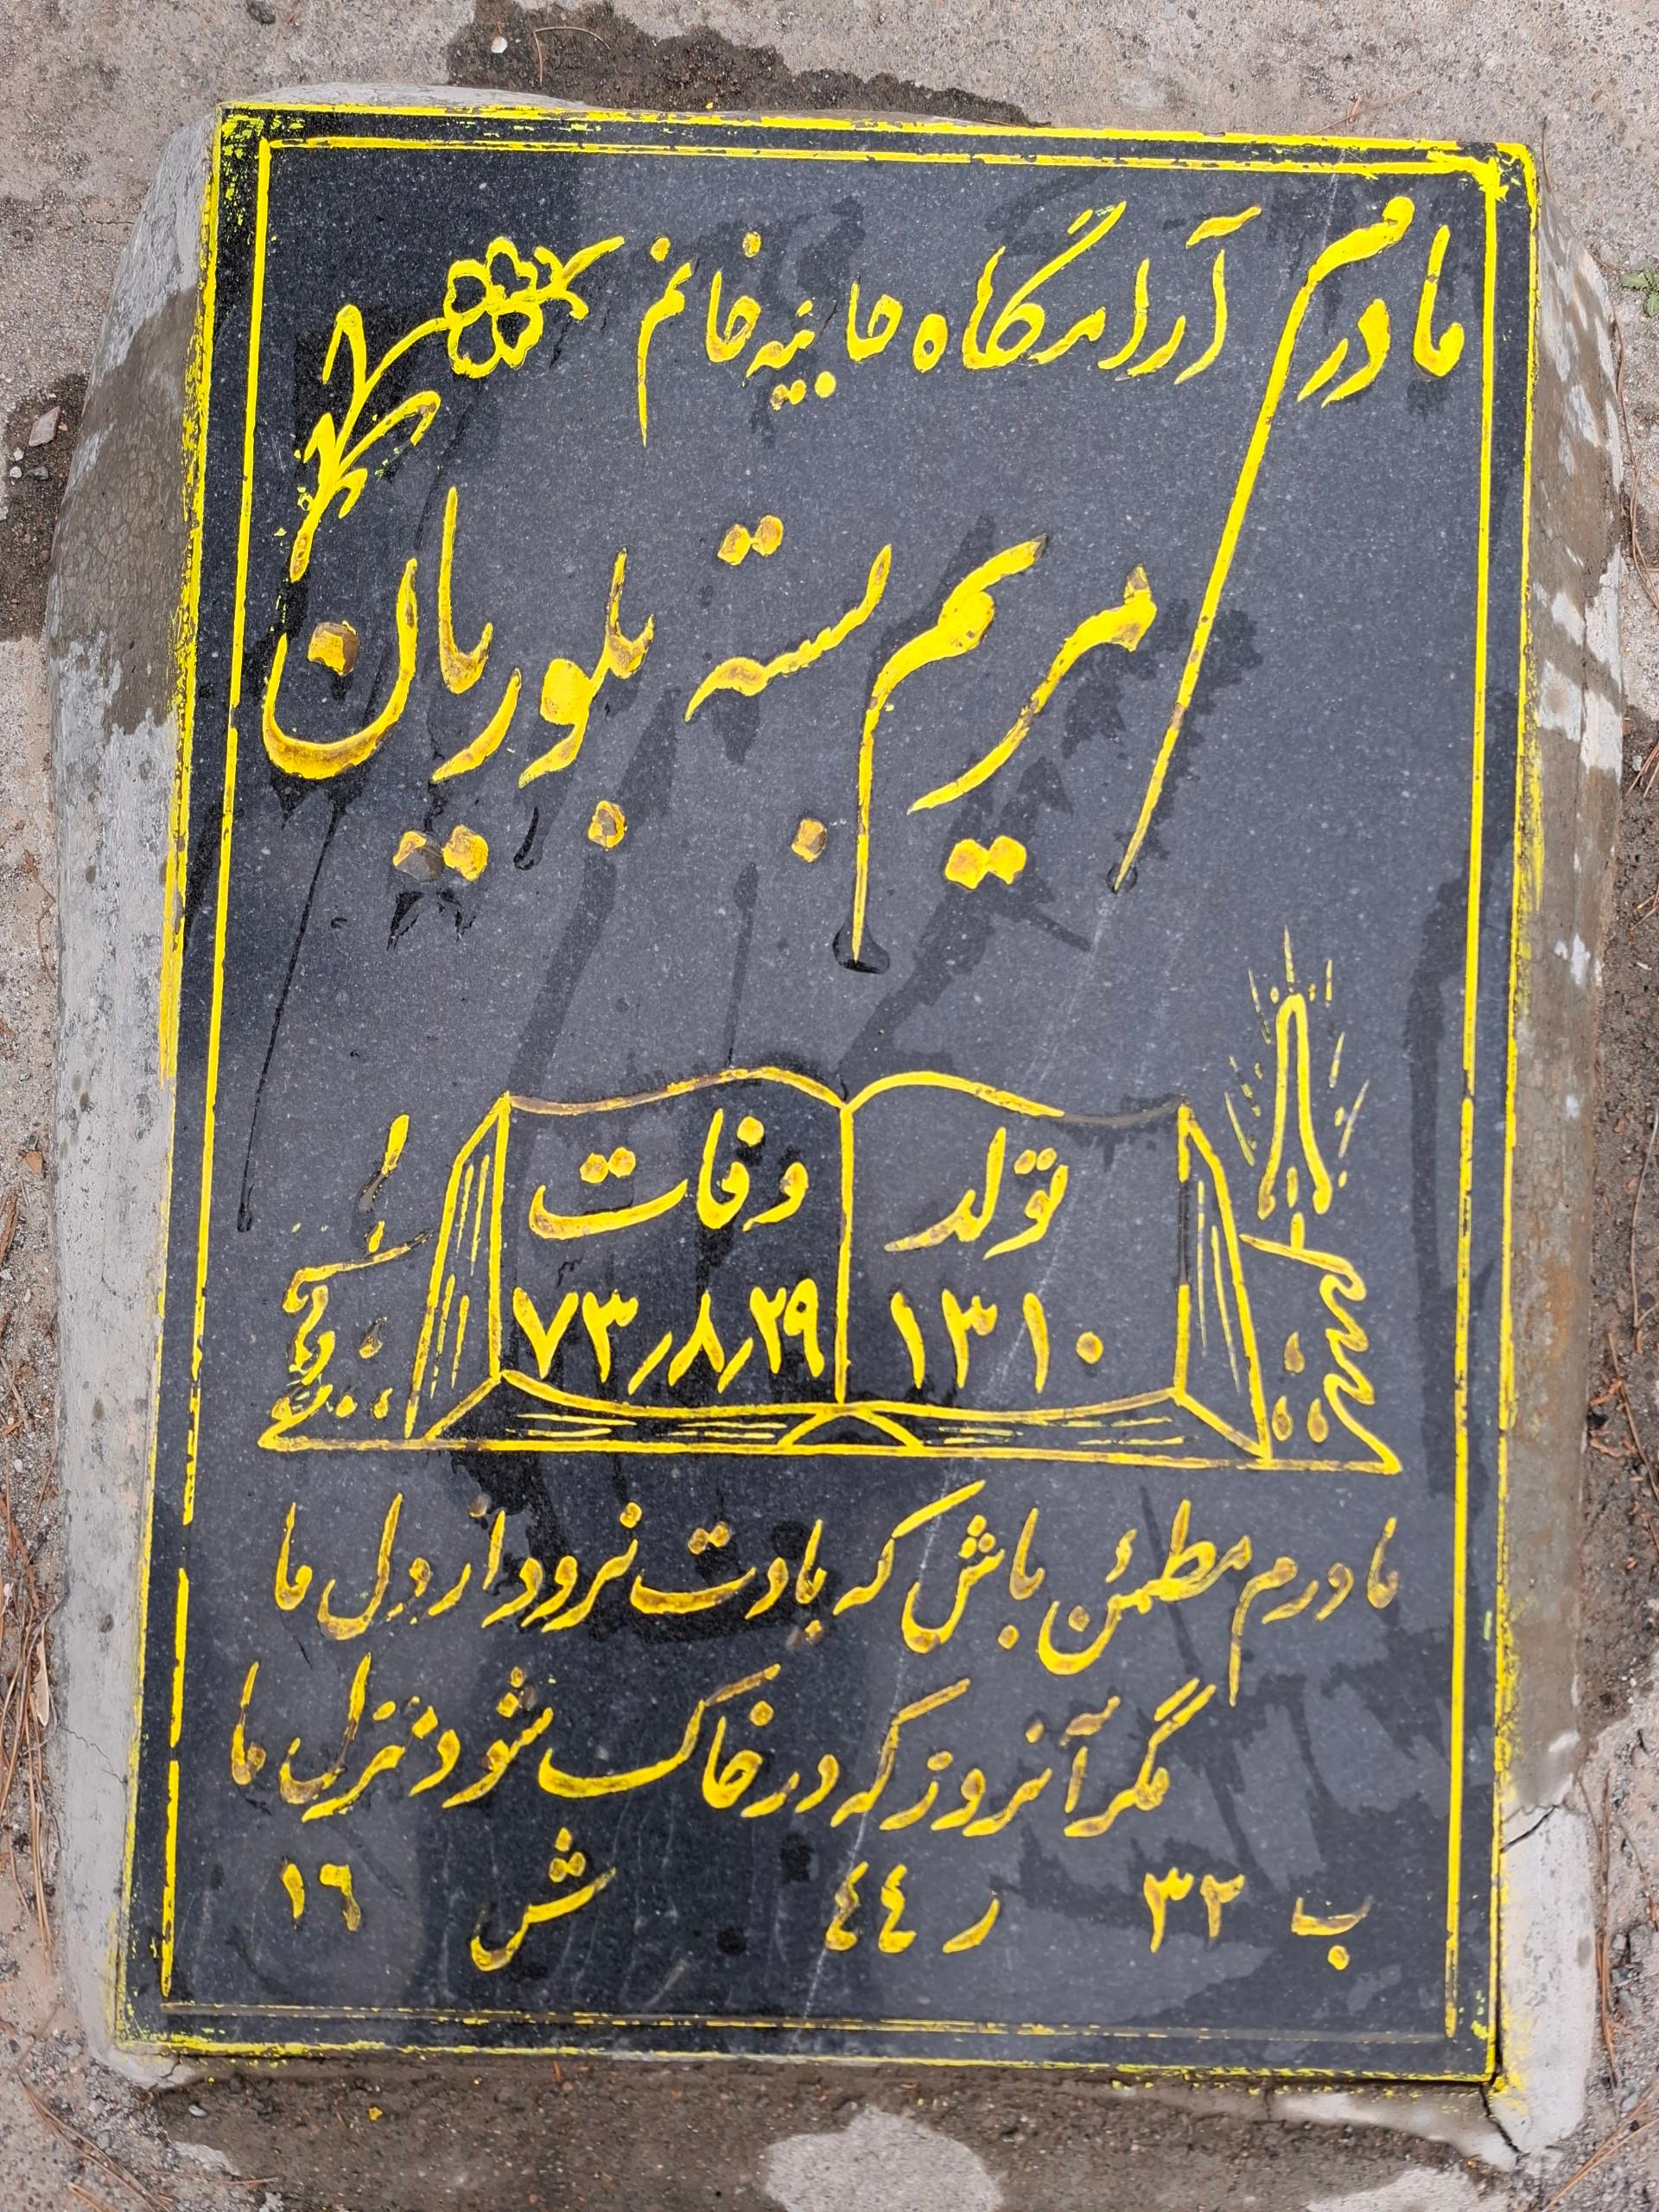 مادرم آرامگاه حاجیه خانم
مریم بسته بلوریان
تولد
۱۳۱۰
وفات
۷۳٫۸٫۲۹
مادرم مطمئن باش که یادت نرود از دل ما
مگر آنروز که در خاک شود منزل ما
ب ۳۲ ر ٤٤ ش ۱٦